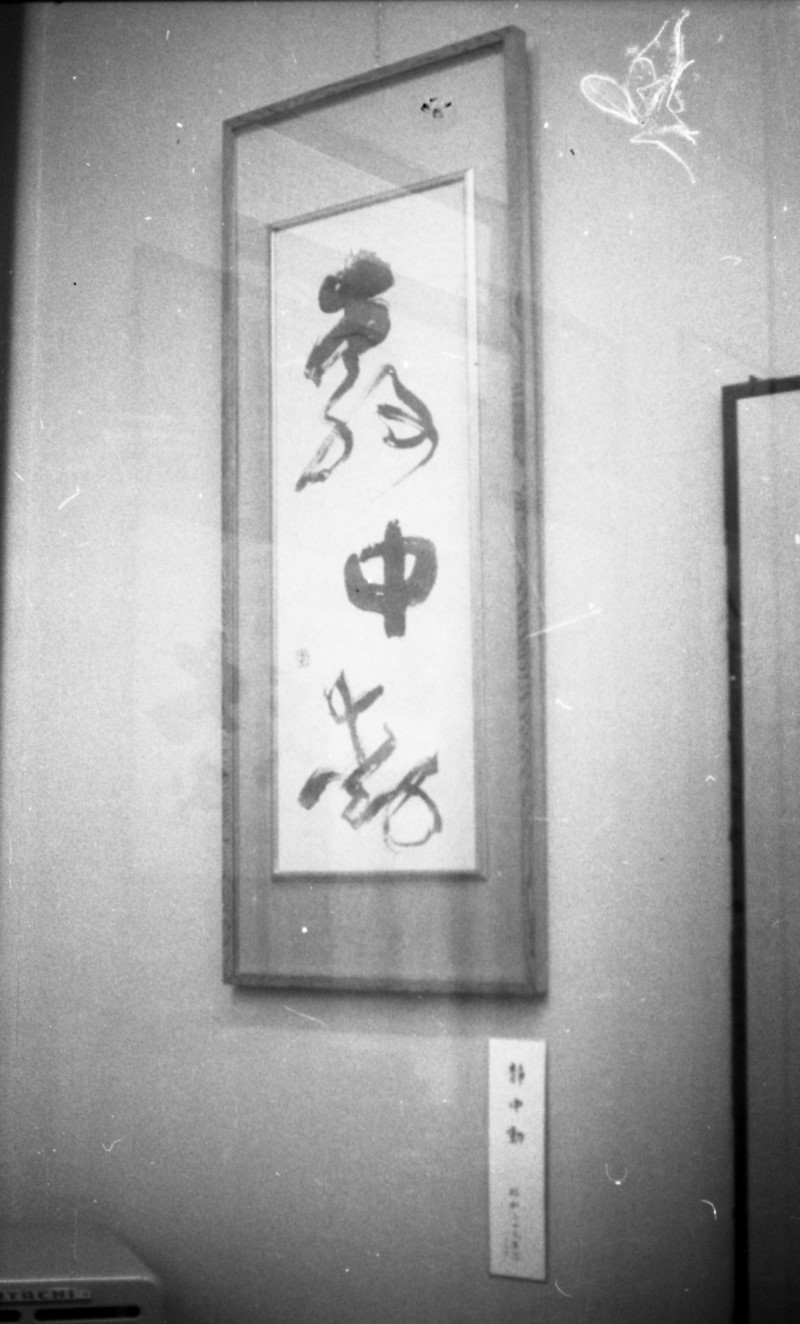 静中動
静中動
HITACHI